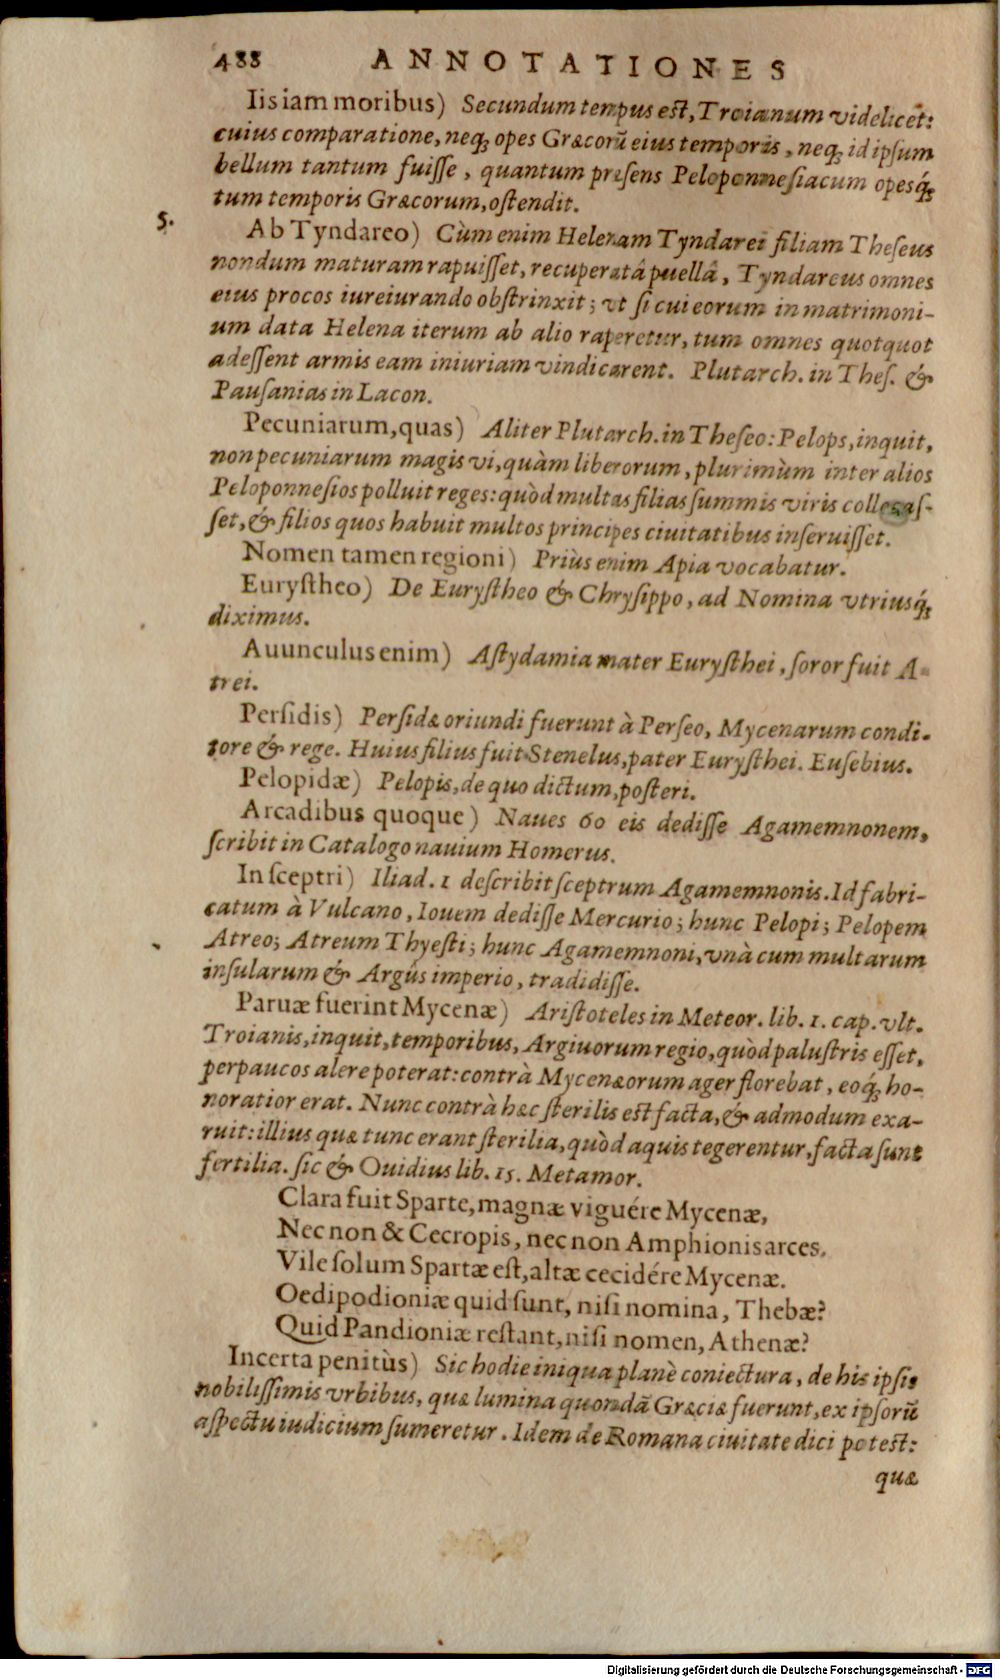 488 ANNOTATIONES
Iis iam moribus) Secundum tempus est, Troianum videlicet:
cuius comparatione, neq; opes Græcorũ eius temporis, neq; id ipsum
bellum tantum fuiſſe, quantum præſens Peloponneſiacum opesq́;
tum temporis Græcorum, oſtendit.
5.
Ab Tyndareo) Cùm enim Helenam Tyndarei filiam Theſeus
nondum maturam rapuiſſet, recuperatâ puellâ, Tyndareus omnes
eius procos iureiurando obſtrinxit; vt ſi cui eorum in matrimoni-
um data Helena iterum ab alio raperetur, tum omnes quotquot
adeſſent armis eam iniuriam vindicarent. Plutarch. in Theſ. &
Pauſanias in Lacon.
Pecuniarum, quas) Aliter Plutarch. in Theſeo: Pelops, inquit,
non pecuniarum magis vi, quàm liberorum, plurimùm inter alios
Peloponneſios polluit reges: quòd multas filias ſummis viris collocaſ-
ſet, & filios quos habuit multos principes ciuitatibus inſeruiſſet.
Nomen tamen regioni) Priùs enim Apia vocabatur.
Euryſtheo) De Euryſtheo & Chryſippo, ad Nomina vtriusq́;
diximus.
Auunculus enim) Aſtydamia mater Euryſthei, ſoror fuit A-
trei.
Perſidis) Perſidæ oriundi fuerunt à Perſeo, Mycenarum condi-
tore & rege. Huius filius fuit Stenelus, pater Euryſthei. Euſebius.
Pelopidæ) Pelopis, de quo dictum, poſteri.
Arcadibus quoque) Naues 60 eis dediſſe Agamemnonem,
ſcribit in Catalogo nauium Homerus.
In ſceptri) Iliad. 1 deſcribit ſceptrum Agamemnonis. Id fabri-
catum à Vulcano, Iouem dediſſe Mercurio; hunc Pelopi; Pelopem
Atreo; Atreum Thyeſti; hunc Agamemnoni, vnà cum multarum
inſularum & Argûs imperio, tradidiſſe.
Paruæ fuerint Mycenæ) Ariſtoteles in Meteor. lib. 1. cap. vlt.
Troianis, inquit, temporibus, Argiuorum regio, quòd paluſtris eſſet,
perpaucos alere poterat: contrà Mycenæorum ager florebat, eoq́; ho-
noratior erat. Nunc contrà hæc ſterilis eſt facta, & admodum exa-
ruit: illius quæ tunc erant ſterilia, quòd aquis tegerentur, facta ſunt
fertilia. ſic & Ouidius lib. 15. Metamor.
Clara fuit Sparte, magnæ viguére Mycenæ,
Nec non & Cecropis, nec non Amphionis arces.
Vile ſolum Spartæ eſt, altæ cecidére Mycenæ.
Oedipodioniæ quid ſunt, niſi nomina, Thebæ?
Quid Pandioniæ reſtant, niſi nomen, Athenæ?
Incerta penitùs) Sic hodie iniqua planè coniectura, de his ipſis
nobiliſſimis vrbibus, quæ lumina quondã Græciæ fuerunt, ex ipſorũ
aſpectu iudicium ſumeretur. Idem de Romana ciuitate dici poteſt:
quæ
Digitalisierung gefördert durch die Deutsche Forschungsgemeinschaft - DFG